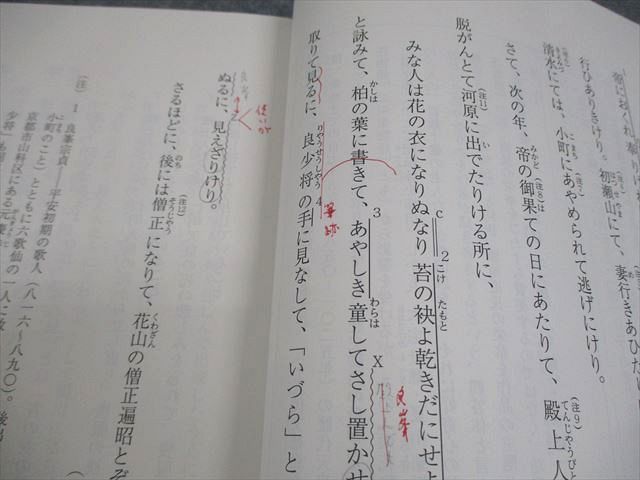 帝におくれ奉り
行ひありきけり。初瀬山にて、妻行きあひた
清水にては、小町にあやめられて逃げにけり。
さて、次の年、帝の御果ての日にあたりて、殿上人
脱がんとて河原に出でたりける所に、
みな人は花の衣になりぬなり苔の袂よ乾きだにせよ
と詠みて、柏の葉に書きて、あやしき童してさし置かせ
取りて見るに、良少将の手に見なして、「いづら」と
ぬるに、見えざりけり。
さるほどに、後には僧正になりて、花山の僧正遍昭とぞ
（注） 1 良峯宗貞――平安初期の歌人（八一六〜八九〇）。
小町のこと）とともに六歌仙の一人に
京都市山科区にある元慶
筆跡
良峯
使いが